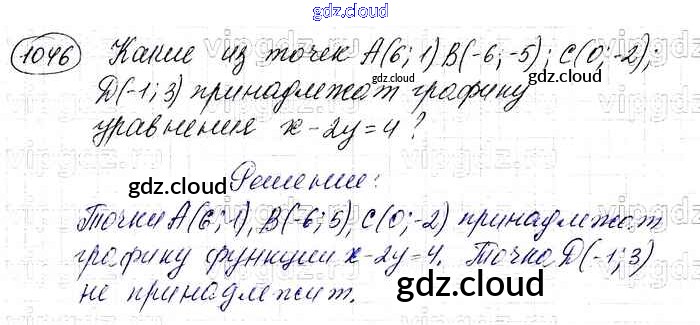 gdz.cloud
1046 Какие из точек A(6; 1) B(-6; -5); C(0; -2);
D(-1; 3) принадлежат графику
gdz.cloud
уравнения x - 2y = 4 ?
Решение:
gdz.cloud
Точки A(6; 1), B(-6; 5), C(0; -2) принадлежат
графику функции x - 2y = 4. Точка D(-1; 3)
gdz.cloud
не принадлежит.
gdz.cloud